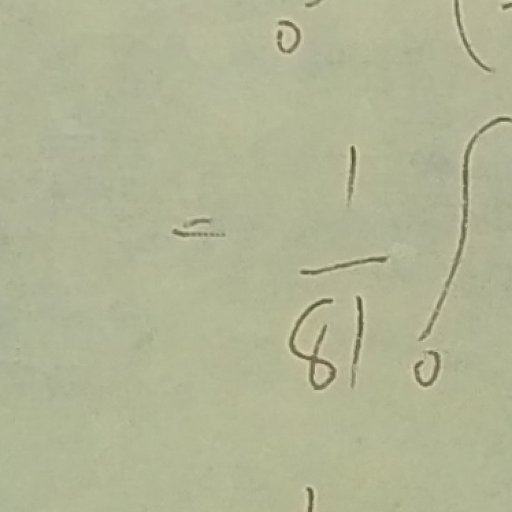 0 (
= 1/81 ∫0